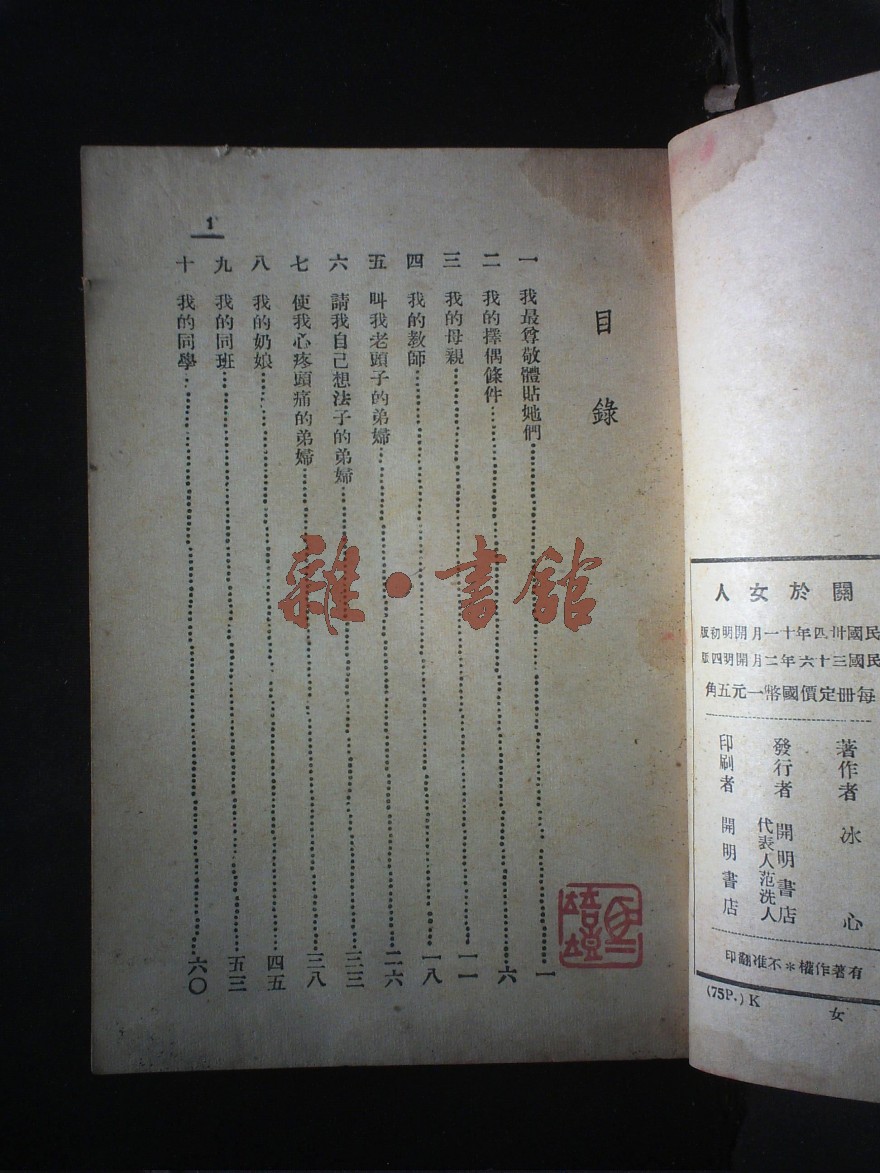 關於女人
民國卅四年十一月開明初版
民國三十六年二月開明四版
每册定價國幣一元五角
著作者 冰心
發行者 開明書店
代表人范洗人
印刷者 開明書店
有著作權＊不准翻印
(75P.) K
女
目錄
一 我最尊敬體貼她們 一
二 我的擇偶條件 六
三 我的母親 一一
四 我的教師 一八
五 叫我老頭子的弟婦 二六
六 請我自己想法子的弟婦 三三
七 使我心疼頭痛的弟婦 三八
八 我的奶娘 四五
九 我的同班 五三
十 我的同學 六〇
1
雜·書館